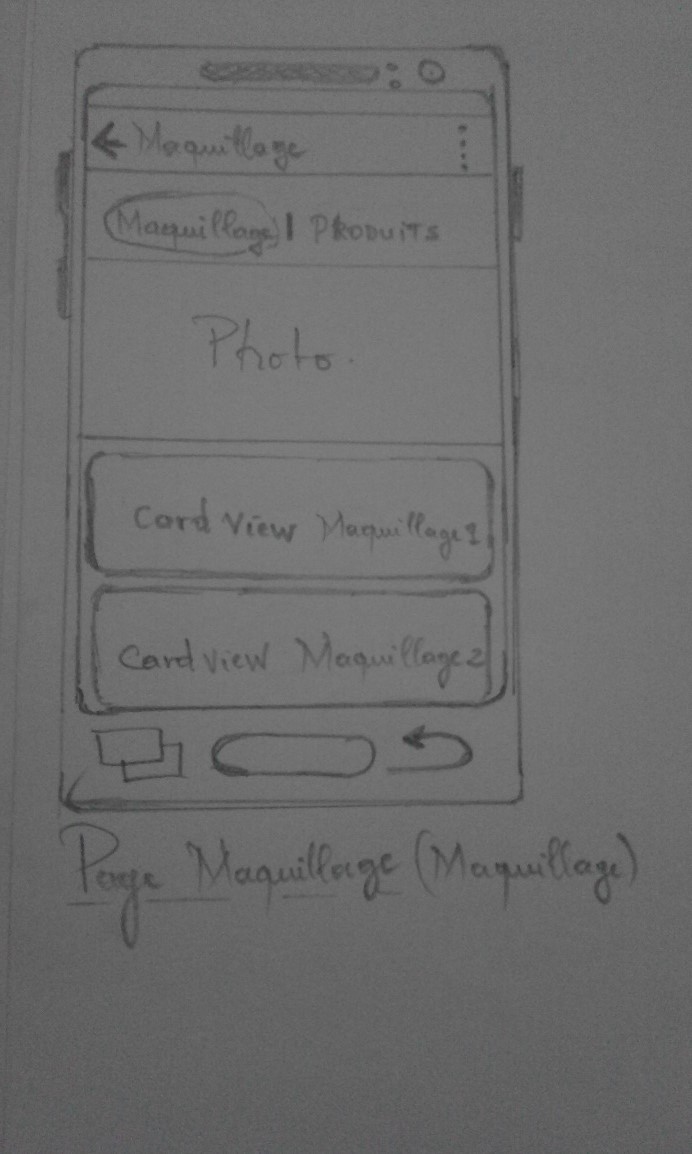 Maquillage
Maquillage | PRODUITS
Photo.
Card View Maquillage 1
Card view Maquillage 2
Page Maquillage (Maquillage)